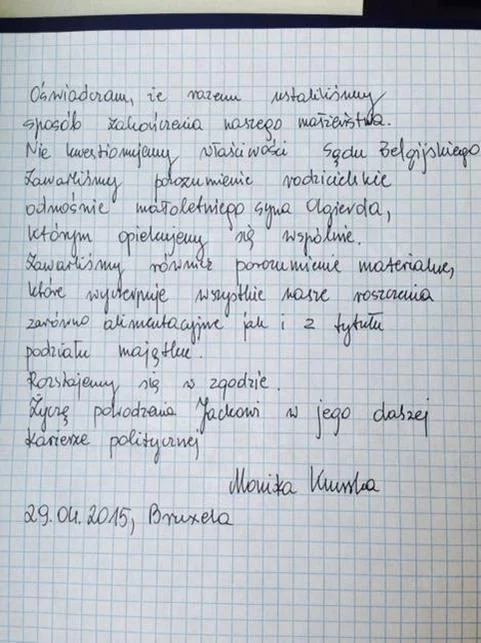 Oświadczam, że razem ustaliliśmy
sposób zakończenia naszego małżeństwa.
Nie kwestionujemy właściwości Sądu Belgijskiego
Zawarliśmy porozumienie rodzicielskie
odnośnie małoletniego syna Olgierda,
którym opiekujemy się wspólnie.
Zawarliśmy również porozumienie materialne,
które wyczerpuje wszystkie nasze roszczenia
zarówno alimentacyjne jak i z tytułu
podziału majątku.
Rozstajemy się w zgodzie.
Życzę powodzenia Jackowi w jego dalszej
karierze politycznej
Monika
29.04.2015, Bruxela